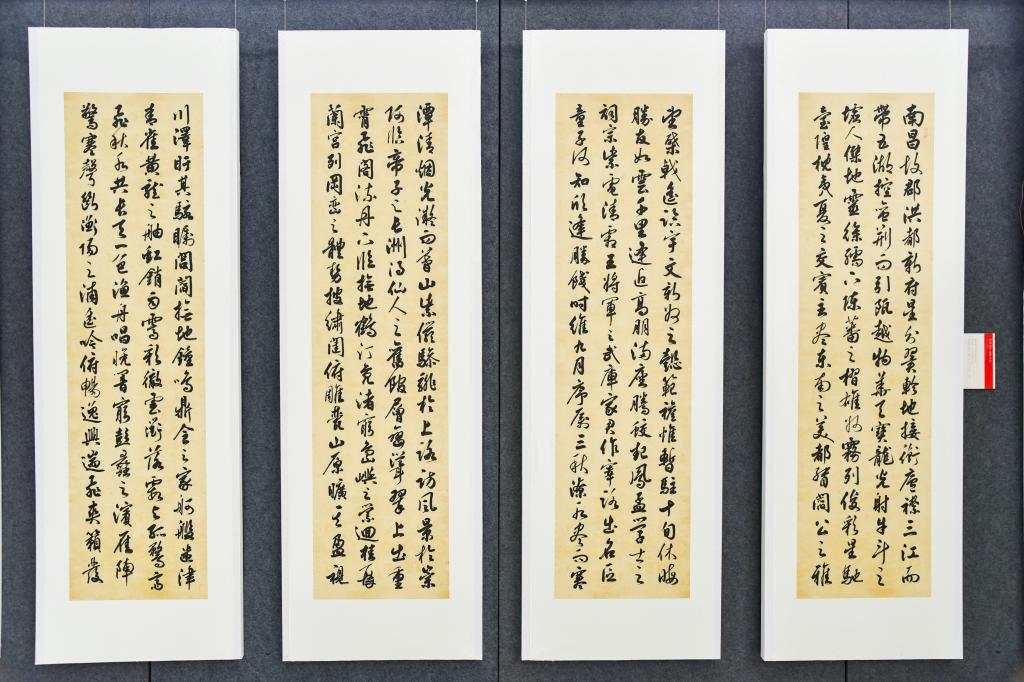 南昌故郡洪都新府星分翼軫地接衡廬襟三江而
帶五湖控蠻荆而引甌越物華天寶龍光射牛斗之
墟人傑地靈徐孺下陳蕃之榻雄州霧列俊彩星馳
臺隍枕夷夏之交賓主盡東南之美都督閻公之雅
望棨戟遥臨宇文新州之懿範襜帷暫駐十旬休暇
勝友如雲千里逢迎高朋滿座騰蛟起鳳孟學士之
詞宗紫電清霜王將軍之武庫家君作宰路出名區
童子何知躬逢勝餞時維九月序屬三秋潦水盡而寒
潭清烟光凝而暮山紫儼驂騑於上路訪風景於崇
阿臨帝子之長洲得仙人之舊館層巒聳翠上出重
霄飛閣流丹下臨無地鶴汀鳧渚窮島嶼之縈迴桂殿
蘭宮列岡巒之體勢披繡闥俯雕甍山原曠其盈視
川澤盱其駭矚閭閻撲地鐘鳴鼎食之家舸艦迷津
青雀黃龍之舳虹銷雨霽彩徹雲衢落霞與孤鶩齊
飛秋水共長天一色漁舟唱晚響窮彭蠡之濱雁陣
驚寒聲斷衡陽之浦遥吟俯暢逸興遄飛爽籟發